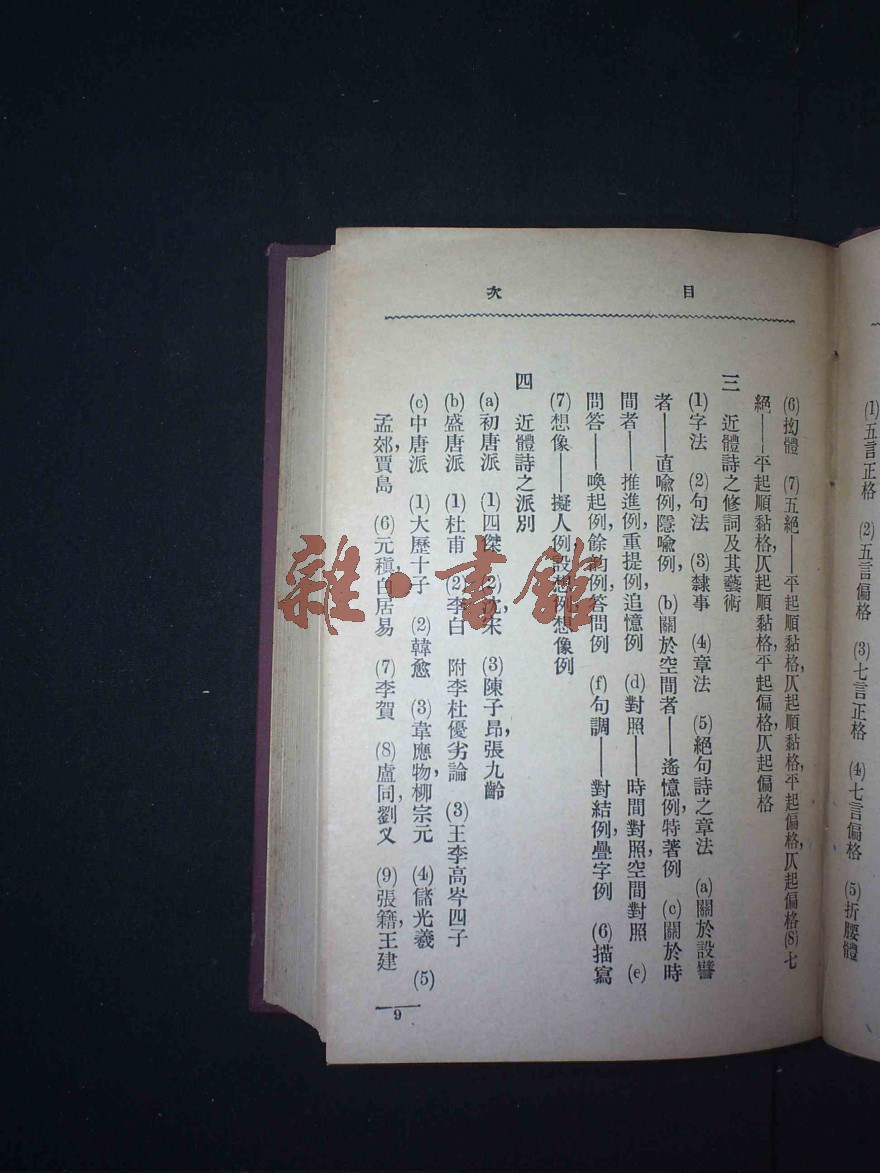 (1)五言正格 (2)五言偏格 (3)七言正格 (4)七言偏格 (5)折腰體
目次
(6)拗體 (7)五絕——平起順黏格,仄起順黏格,平起偏格,仄起偏格(8)七
絕——平起順黏格,仄起順黏格,平起偏格,仄起偏格
三 近體詩之修詞及其藝術
(1)字法 (2)句法 (3)隸事 (4)章法 (5)絕句詩之章法 (a)關於設譬
者——直喻例,隱喻例, (b)關於空間者——遙憶例,特著例 (c)關於時
間者——推進例,重提例,追憶例 (d)對照——時間對照,空間對照 (e)
問答——喚起例,餘韵例,答問例 (f)句調——對結例,疊字例 (6)描寫
(7)想像——擬人例,設想例,想像例
四 近體詩之派別
(a)初唐派 (1)四傑 (2)沈,宋 (3)陳子昂,張九齡
(b)盛唐派 (1)杜甫 (2)李白 附李杜優劣論 (3)王李高岑四子
(c)中唐派 (1)大歷十子 (2)韓愈 (3)韋應物,柳宗元 (4)儲光羲 (5)
孟郊,賈島 (6)元稹,白居易 (7)李賀 (8)盧同,劉叉 (9)張籍,王建
9
雜·書館